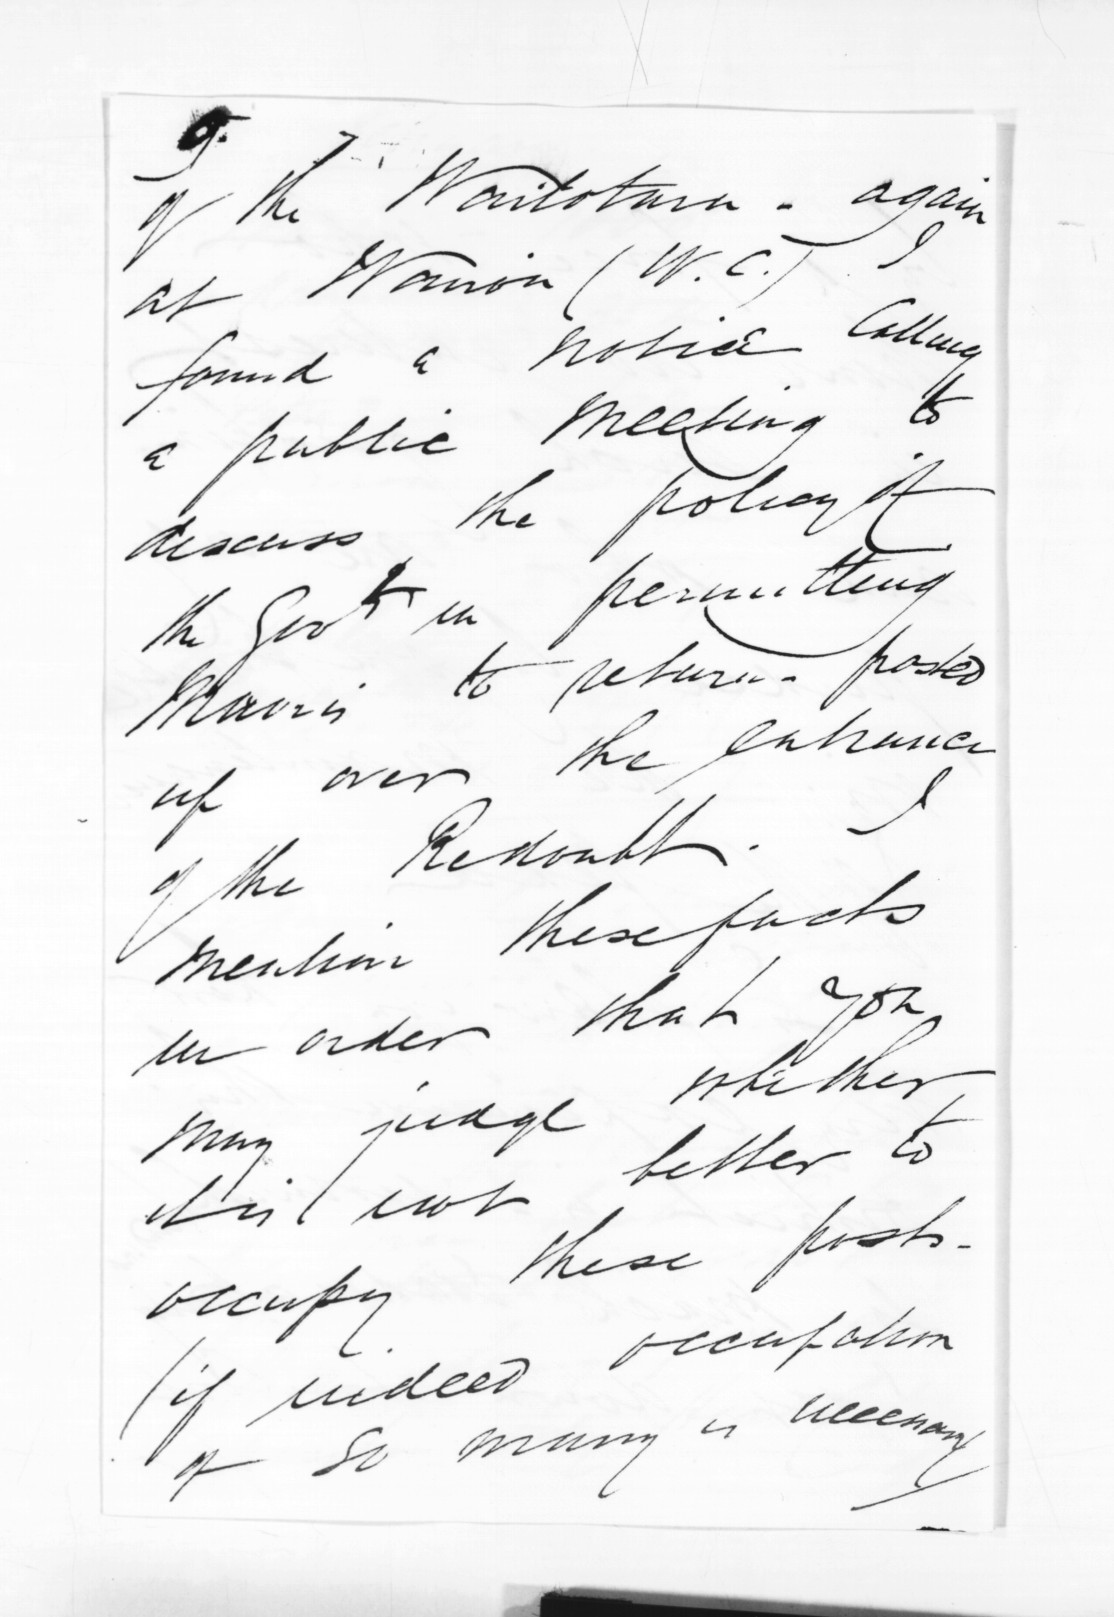 9.
of the Waitotara - again
at Wairoa (W. C.) I
found a notice calling
a public meeting to
discuss the policy of
the Govt in permitting
Maoris to return - posted
up over the entrance
of the Redoubt. I
mention these facts
in order that you
may judge whether
it is not better to
occupy these posts -
(if indeed occupation
of so many is necessary